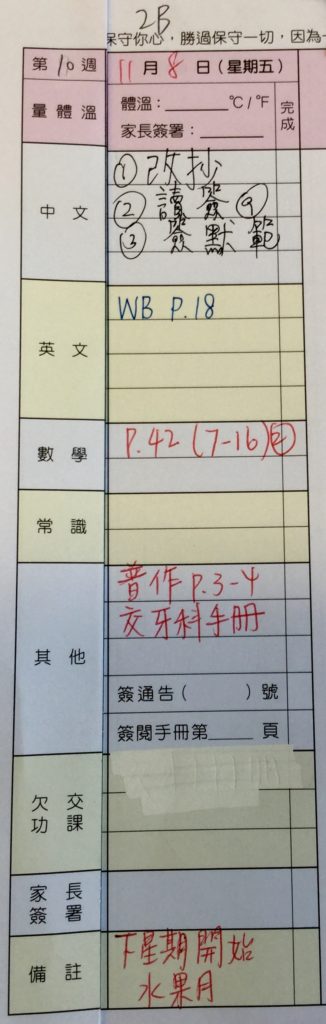 2B
保守你心，勝過保守一切，因為一
第10週 11月8日（星期五）
量體溫 體溫：________℃/℉ 完成
家長簽署：________
中文 ①改抄
②讀簽④
③簽默範
英文 WB P.18
數學 P.42 (7-16)
常識
其他 普作 P.3-4
交牙科手冊
簽通告（ ）號
簽閱手冊第____頁
欠交功課
家長簽署
備註 下星期開始
水果月